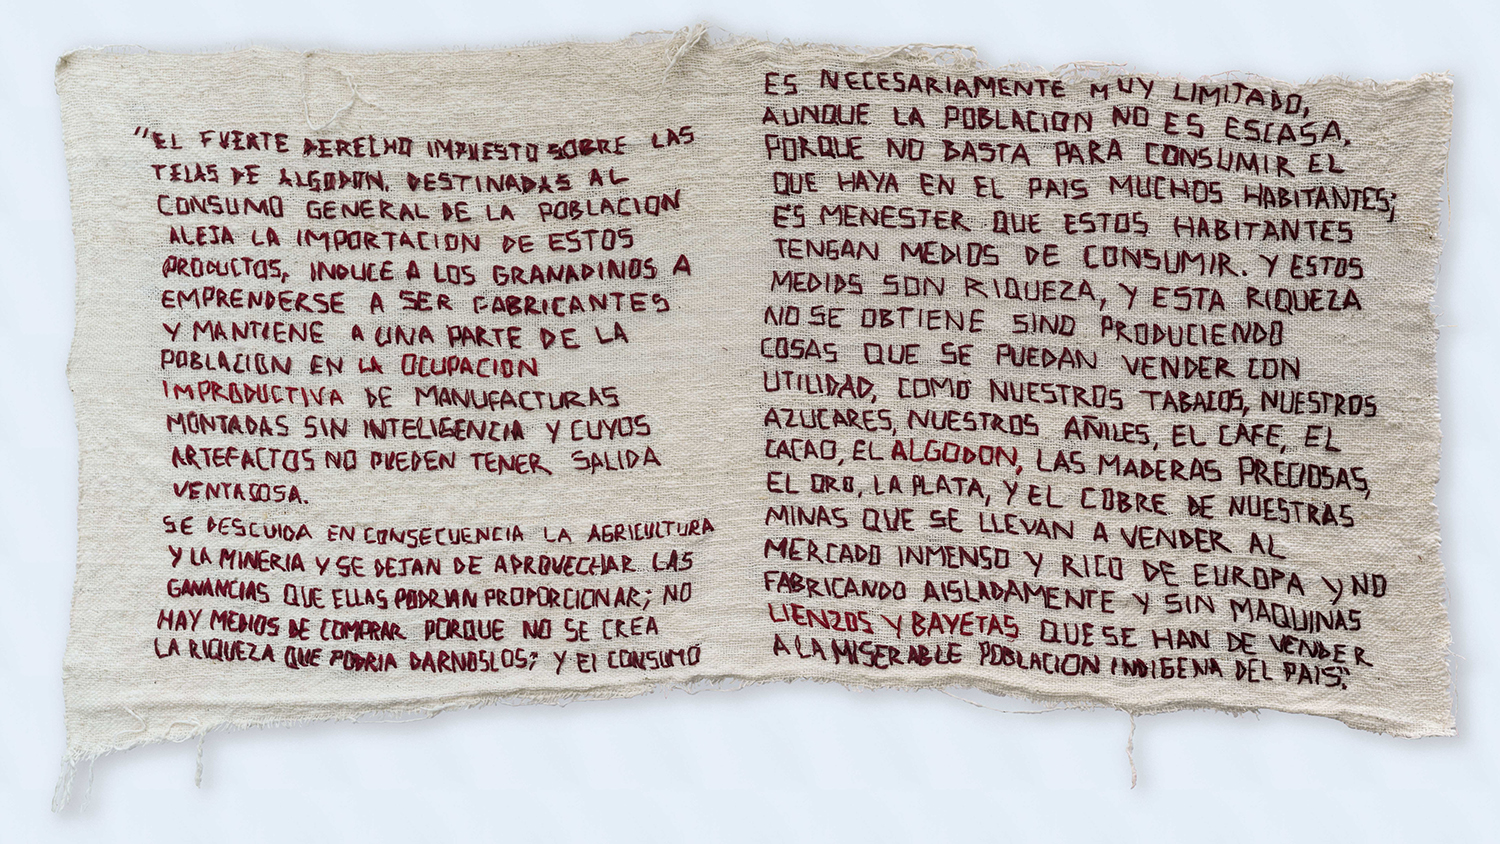 "EL FUERTE DERECHO IMPUESTO SOBRE LAS
TELAS DE ALGODON, DESTINADAS AL
CONSUMO GENERAL DE LA POBLACION
ALEJA LA IMPORTACION DE ESTOS
PRODUCTOS, INDUCE A LOS GRANADINOS A
EMPRENDERSE A SER FABRICANTES
Y MANTIENE A UNA PARTE DE LA
POBLACION EN LA OCUPACION
IMPRODUCTIVA DE MANUFACTURAS
MONTADAS SIN INTELIGENCIA Y CUYOS
ARTEFACTOS NO PUEDEN TENER SALIDA
VENTAJOSA.
SE DESCUIDA EN CONSECUENCIA LA AGRICULTURA
Y LA MINERIA Y SE DEJAN DE APROVECHAR LAS
GANANCIAS QUE ELLAS PODRIAN PROPORCIONAR; NO
HAY MEDIOS DE COMPRAR PORQUE NO SE CREA
LA RIQUEZA QUE PODRIA DARNOSLOS; Y El CONSUMO
ES NECESARIAMENTE MUY LIMITADO,
AUNQUE LA POBLACION NO ES ESCASA,
PORQUE NO BASTA PARA CONSUMIR EL
QUE HAYA EN EL PAIS MUCHOS HABITANTES;
ES MENESTER QUE ESTOS HABITANTES
TENGAN MEDIOS DE CONSUMIR. Y ESTOS
MEDIOS SON RIQUEZA, Y ESTA RIQUEZA
NO SE OBTIENE SINO PRODUCIENDO
COSAS QUE SE PUEDAN VENDER CON
UTILIDAD, COMO NUESTROS TABACOS, NUESTROS
AZUCARES, NUESTROS AÑILES, EL CAFE, EL
CACAO, EL ALGODON, LAS MADERAS PRECIOSAS,
EL ORO, LA PLATA, Y EL COBRE DE NUESTRAS
MINAS QUE SE LLEVAN A VENDER AL
MERCADO INMENSO Y RICO DE EUROPA Y NO
FABRICANDO AISLADAMENTE Y SIN MAQUINAS
LIENZOS Y BAYETAS QUE SE HAN DE VENDER
A LA MISERABLE POBLACION INDIGENA DEL PAIS".